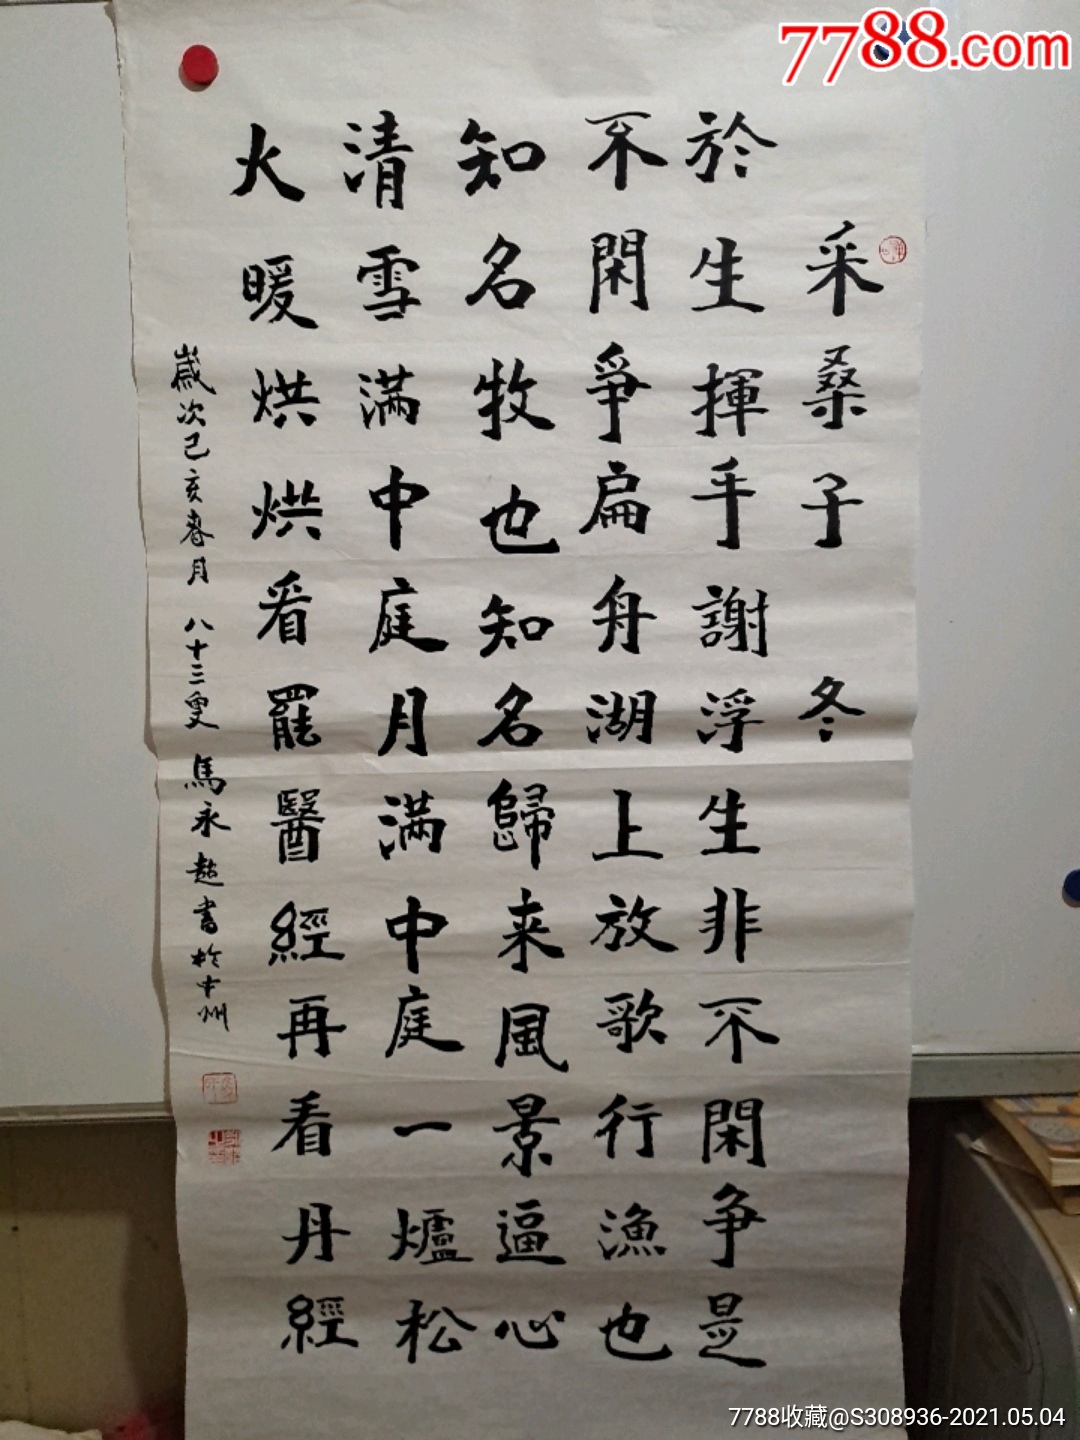 7788.com
采桑子 冬
於生揮手謝浮生非不閑争是
不閑爭扁舟湖上放歌行漁也
知名牧也知名歸来風景逼心
清雪满中庭月满中庭一爐松
火暖烘烘看罷醫經再看丹經
歲次己亥春月 八十三叟 馬永超書於中州
7788收藏@S308936-2021.05.04